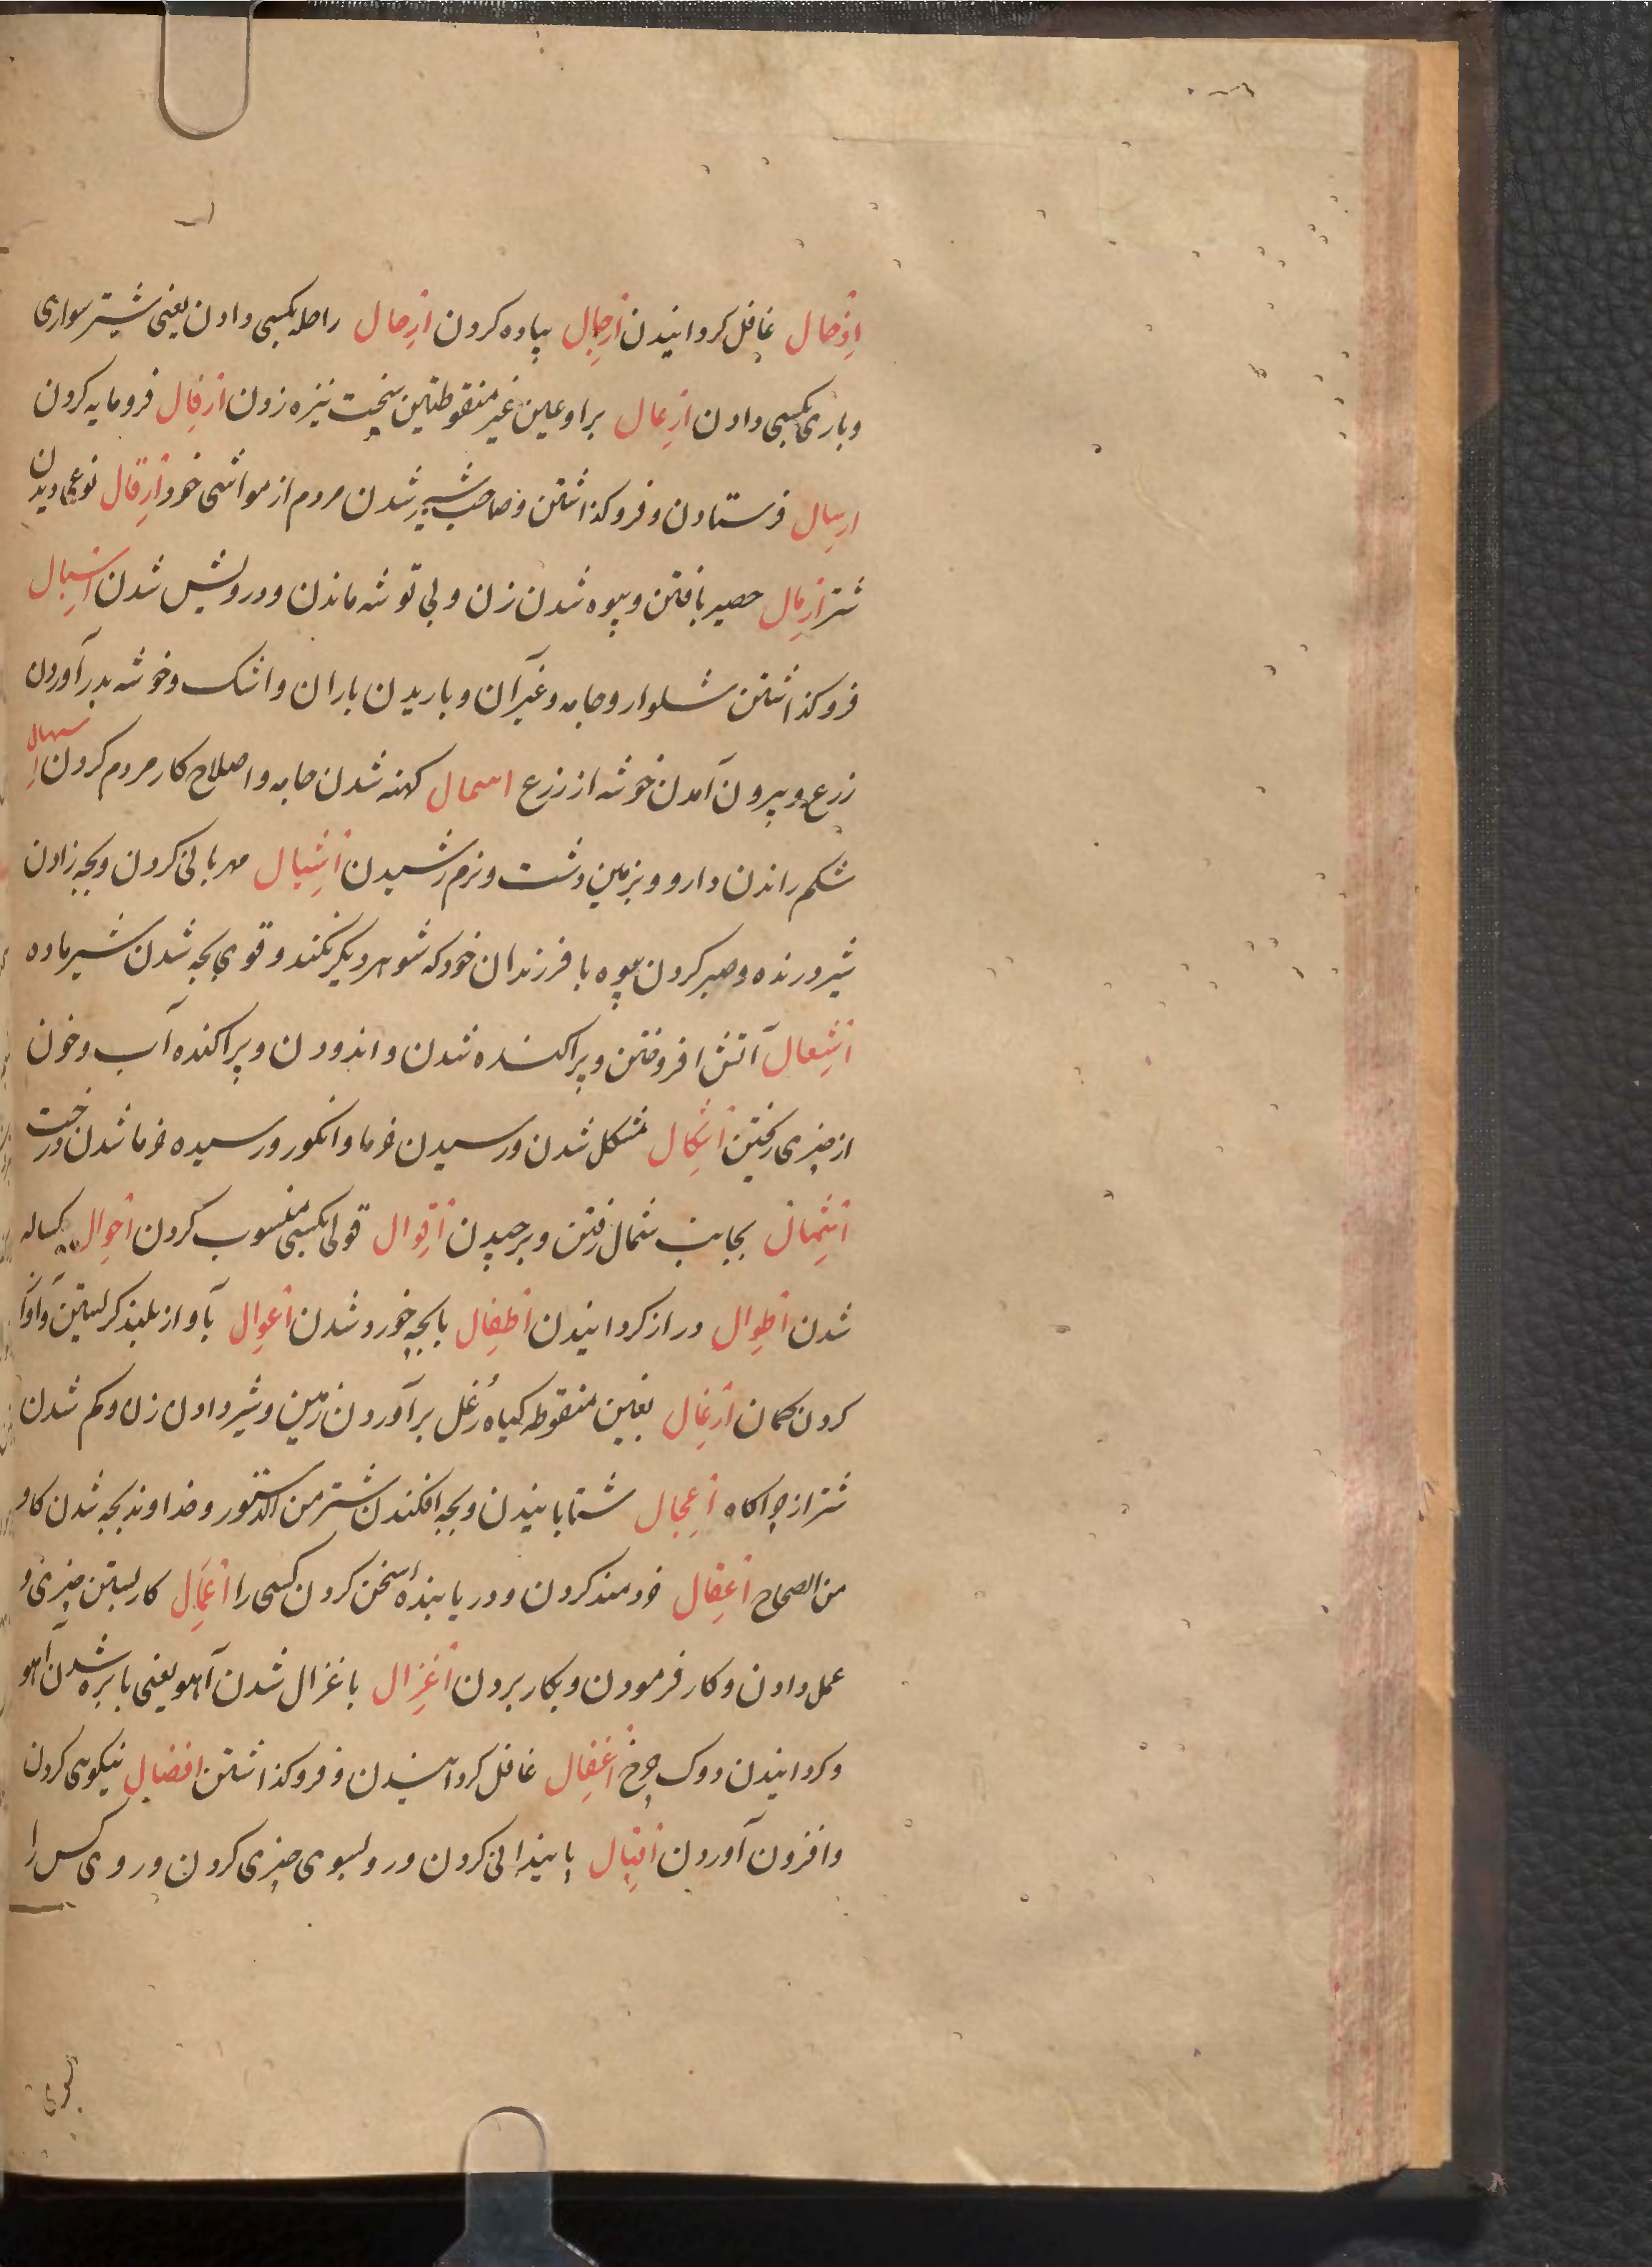 اِذهال غافل کردانیدن اَرجِال پیاده کردن اَرحِال راحله بکسی دادن یعنی شتر سواری
و باری بکسی دادن اَرعِال برا و عین غیر منقوطتین سخت نیزه زدن اَرفِال فرومایه کردن
ارسِال فرستادن و فروکذاشتن و صاحب شیر شدن مردم از مواشی خود اَرقِال نوعی دویدن
شتر اَرمِال حصیر بافتن و بیوه شدن زن و بی توشه ماندن و درویش شدن اسبِال
فروکذاشتن شلوار و جامه و غیرآن و باریدن باران و اشک و خوشه بدرآوردن
زرع و بیرون آمدن خوشه از زرع اسمال کهنه شدن جامه و اصلاح کار مردم کردن اِسهال
شکم راندن دارو و بزمین دشت و نرم رسیدن اَشبِال مهربانی کردن و بچه زادن
شیر درنده و صبر کردن بیوه با فرزندان خود که شوهر دیکر نکند و قوی بچه شدن شیر ماده
اَشعِال آتش افروختن و پراکنده شدن و اندودن و پراکنده آب و خون
از چیزی رفتن اَشکِال مشکل شدن و رسیدن خرما و انکور و رسیده خرما شدن درخت
اَشمِال بجانب شمال رفتن و برچیدن اَقوِال قولی بکسی منسوب کردن اَحوِال یکساله
شدن اَطوِال دراز کردانیدن اَطفِال با بچه خورد شدن اَعوِال بآواز بلند کریستن و آواز
کردن کمان اَرغِال بغین منقوطه کیاه رُغل برآوردن زمین و شیر دادن زن و کم شدن
شتر از چراکاه اَعجِال شتابانیدن و بچه افکندن شتر من الدستور و خداوند بچه شدن کاو
من الصحاح اَعقِال خردمند کردن و دریابنده سخن کردن کسی را اَعمَال کار بستن چیزی و
عمل دادن و کار فرمودن و بکار بردن اَغزِال با غزال شدن آهو یعنی با بره شدن آهو
و کردانیدن دوک چرخ اَغفِال غافل کردانیدن و فروکذاشتن افضِال نیکوی کردن
و افزون آوردن اَقبِال پایندانی کردن و رو بسوی چیزی کردن و روی کس را
بسوی